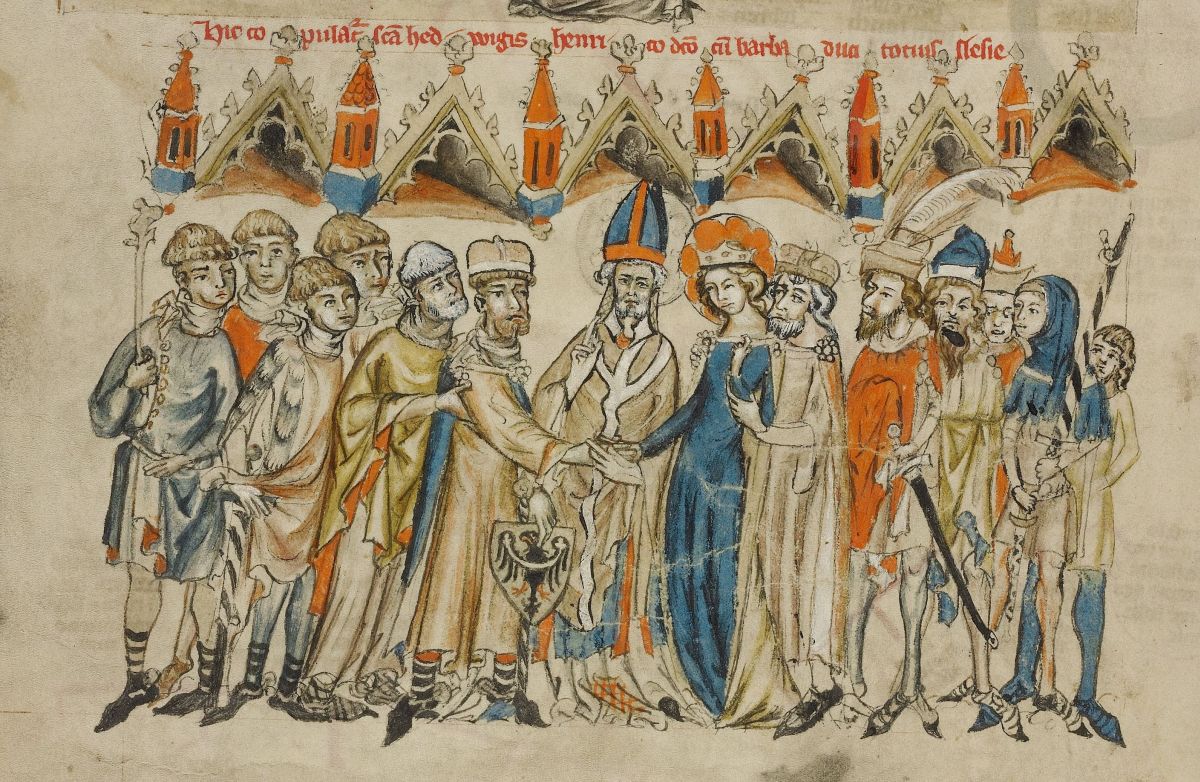 Hic co pulat̃ scã hed wigis henri co dc̃o cũ barba duci totius slesie